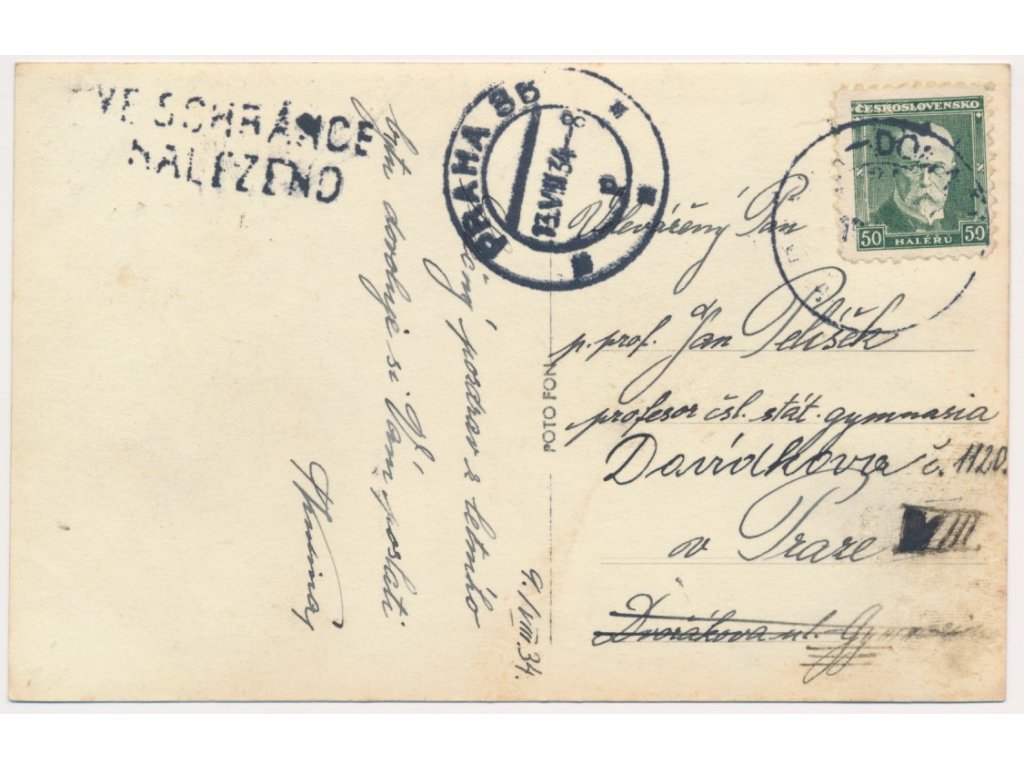 VE SCHRÁNCE
NALEZENO
PRAHA 85
13.VIII 34
ČESKOSLOVENSKO
50 HALÉŘŮ 50
-DO-
pozdrav z letního
bytu dovoluje si Vám poslati
9./VIII.34.
FOTO FON
Velevážený Pan
p. prof. Jan Pelíšek
profesor čsl. stát. gymnasia
Davídkova č. 1120.
v Praze VIII.
Dvořákova ul.